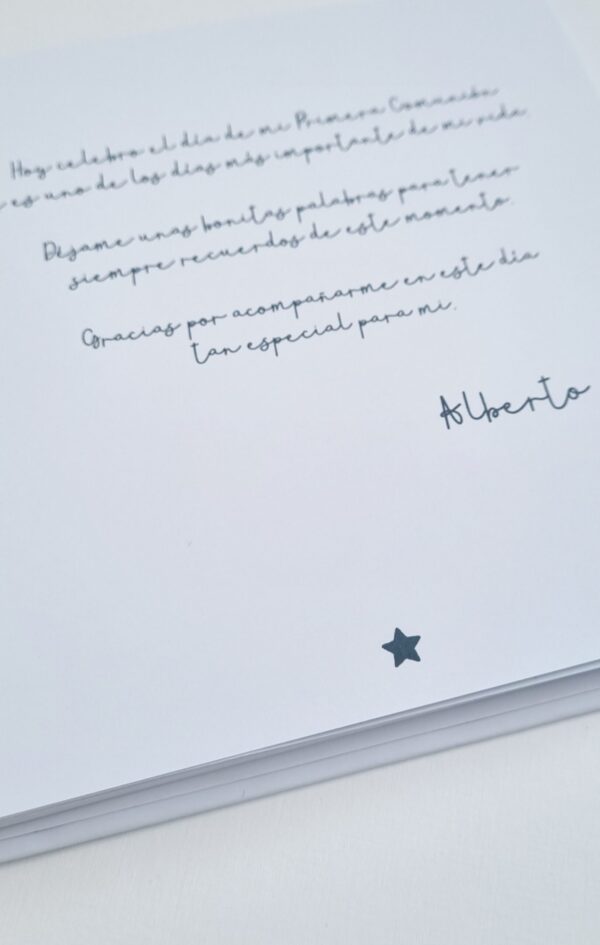 Hoy celebro el día de mi Primera Comunión
es uno de los días más importante de mi vida.
Déjame unas bonitas palabras para tener
siempre recuerdos de este momento.
Gracias por acompañarme en este día
tan especial para mi.
Alberto